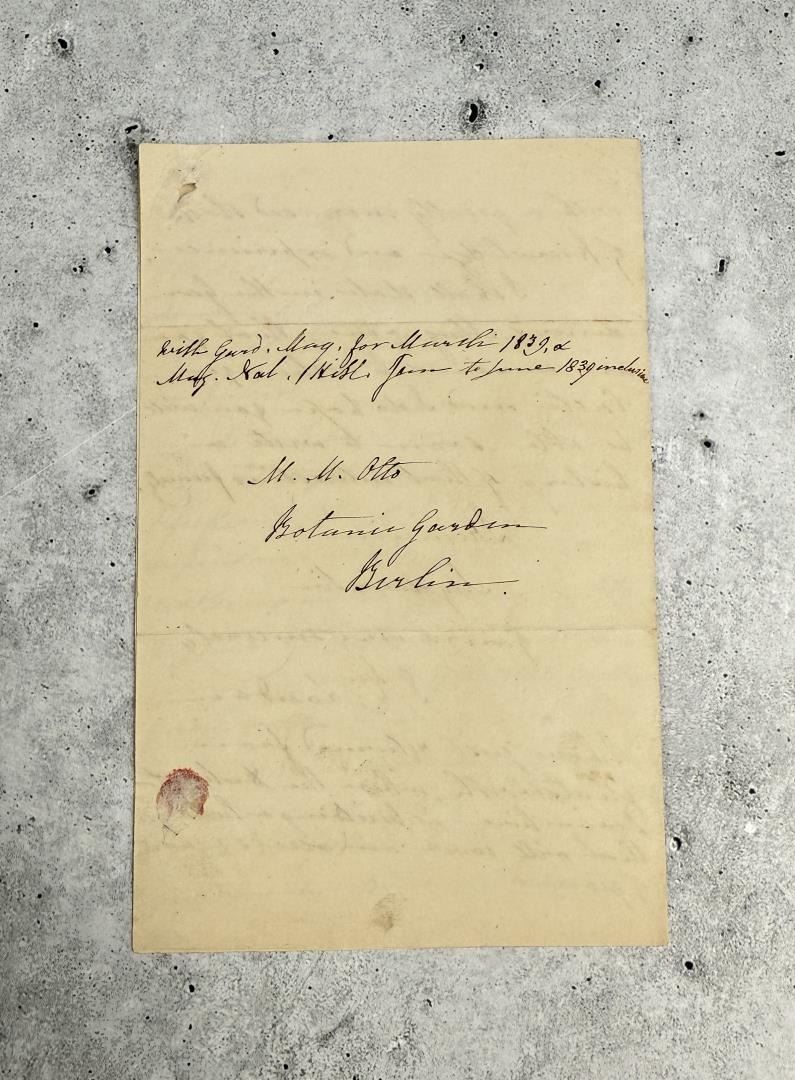 with Gard. Mag. for March 1839, &
Mag. Nat. Hist. Jan to June 1839 inclusive
M. M. Otto
Botanic Garden
Berlin.